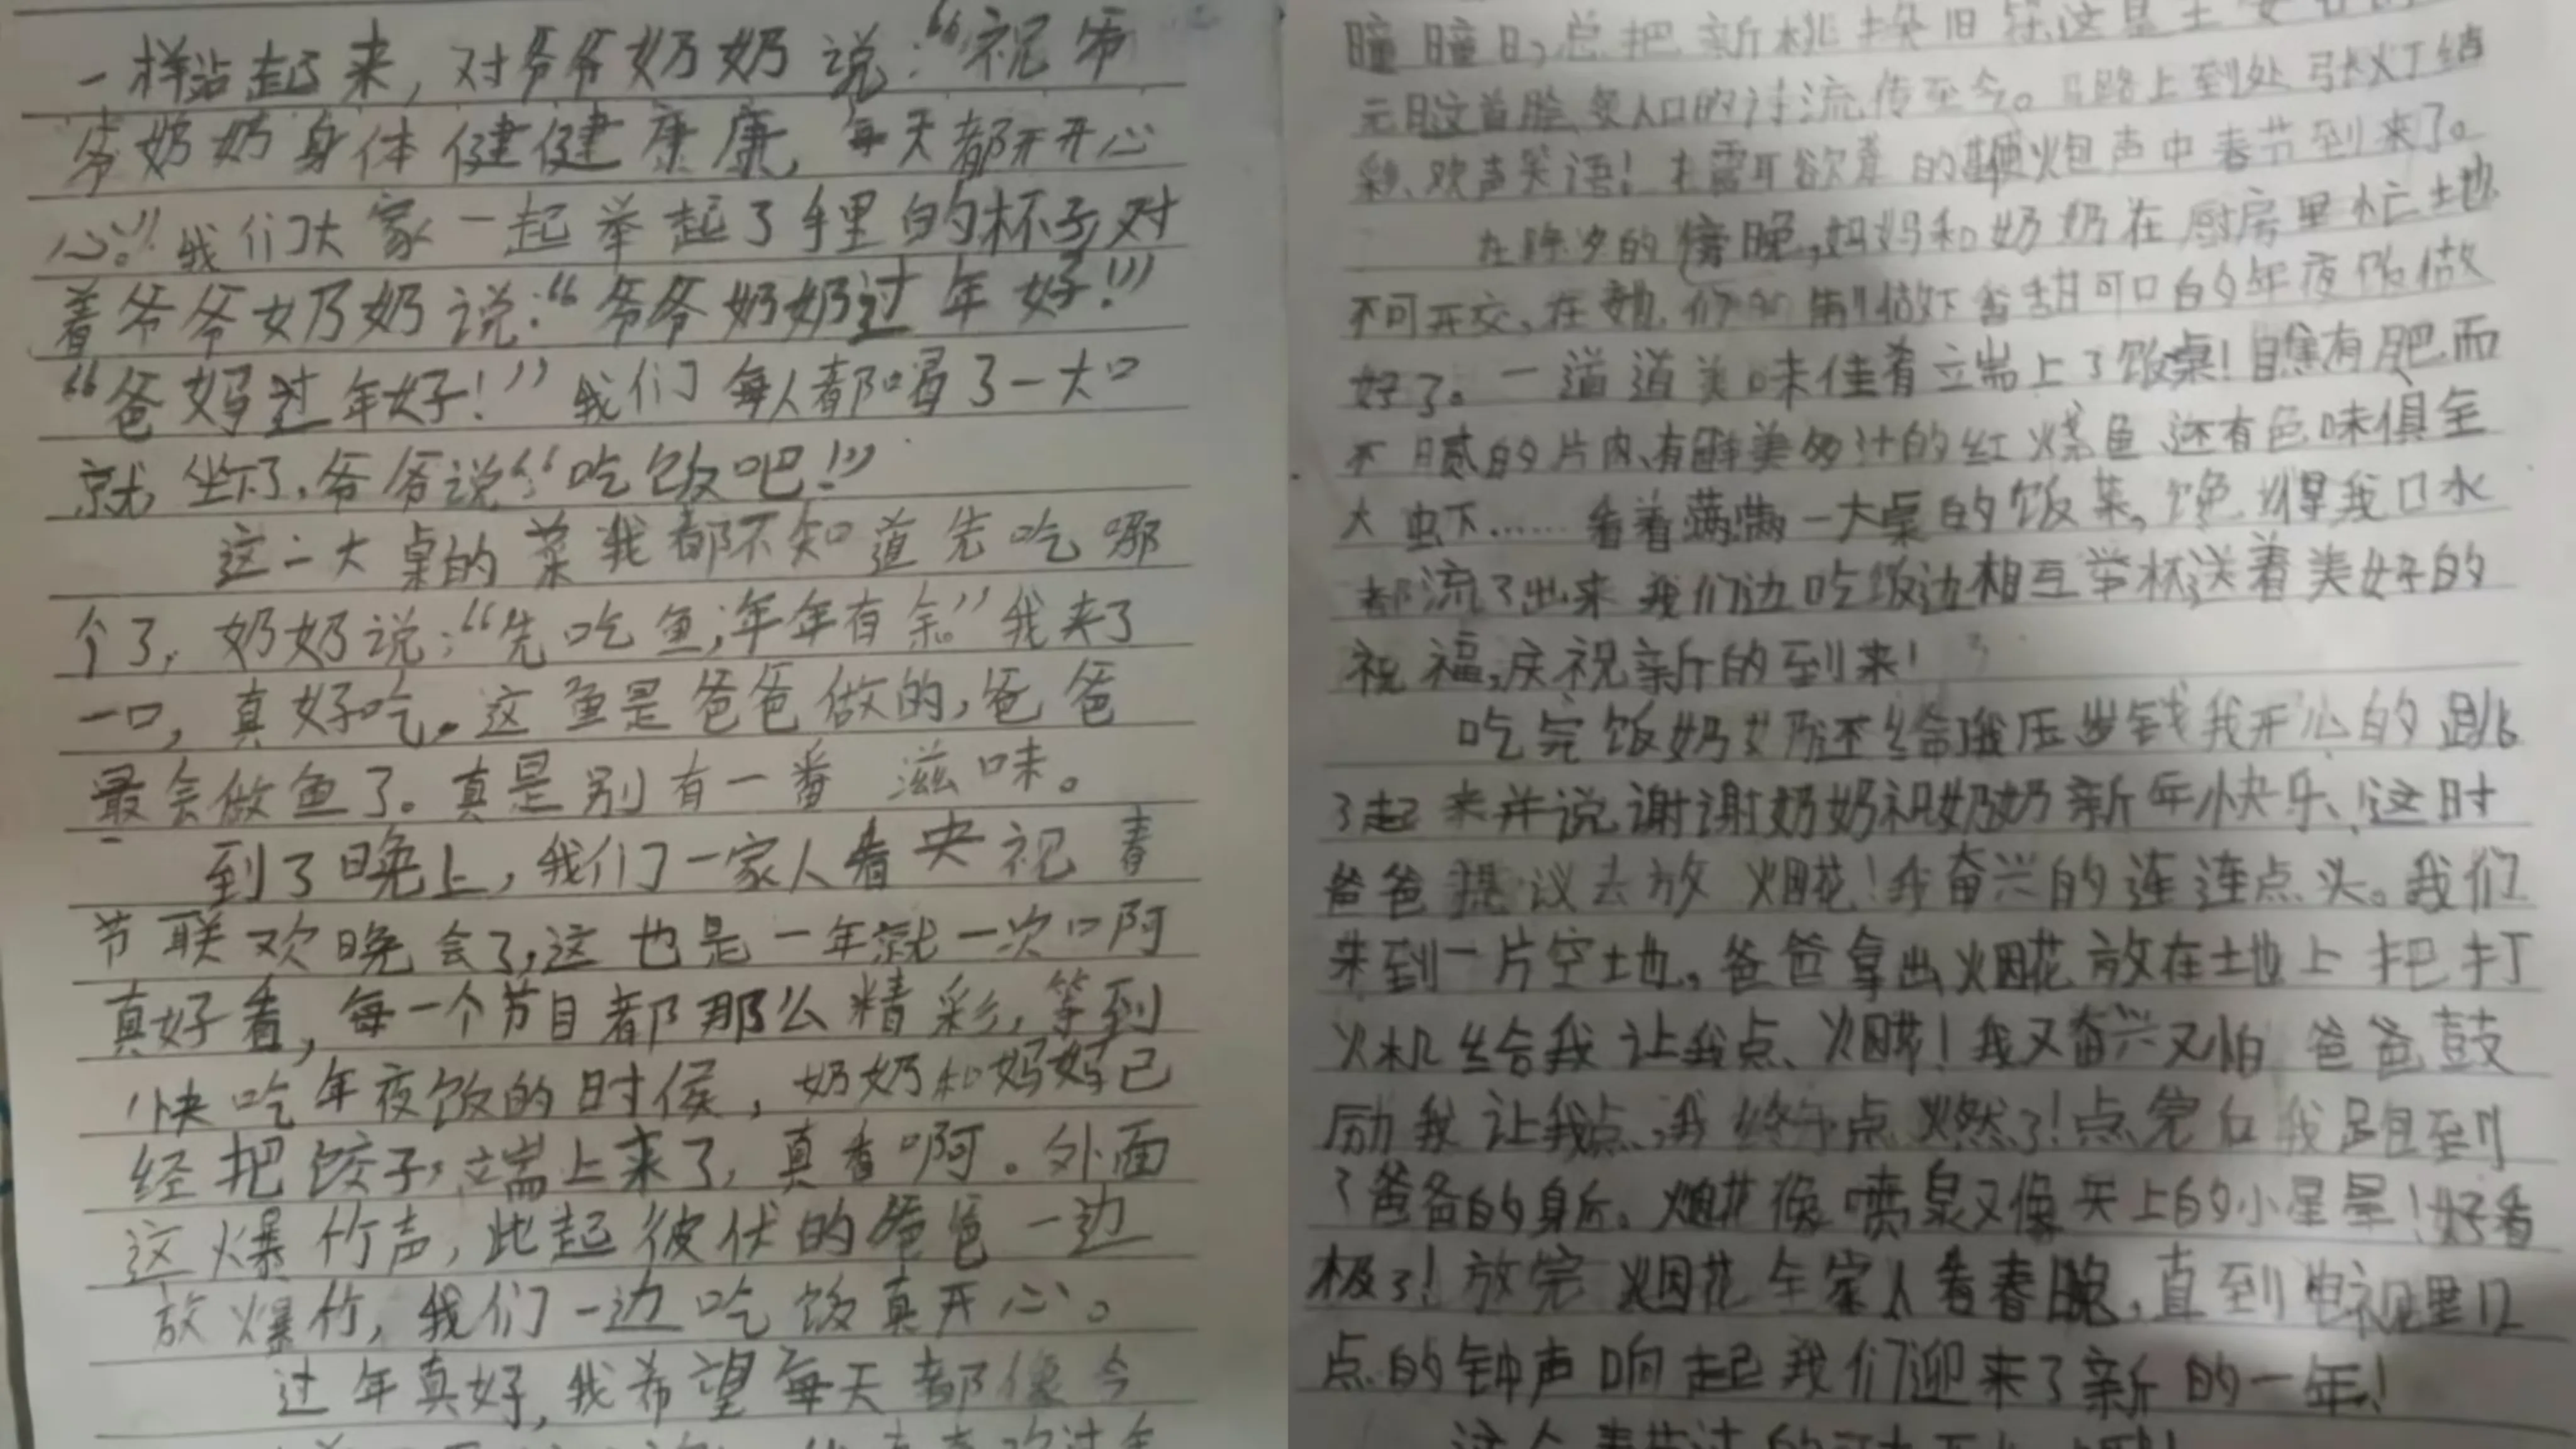 一样站起来，对爷爷奶奶说：“祝爷
爷奶奶身体健健康康，每天都开开心
心。”我们大家一起举起了手里的杯子，对
着爷爷奶奶说：“爷爷奶奶过年好！”
“爸妈过年好！”我们每人都喝了一大口
就坐下了，爷爷说“吃饭吧！”
这一大桌的菜我都不知道先吃哪
个了，奶奶说：“先吃鱼，年年有余。”我来了
一口，真好吃。这鱼是爸爸做的，爸爸
最会做鱼了。真是别有一番滋味。
到了晚上，我们一家人看央视春
节联欢晚会了，这也是一年就一次啊
真好看，每一个节目都那么精彩，等到
快吃年夜饭的时候，奶奶和妈妈已
经把饺子端上来了，真香啊。外面
这爆竹声，此起彼伏的爸爸一边
放爆竹，我们一边吃饭真开心。
过年真好，我希望每天都像今
瞳瞳日，总把新桃换旧符这是王安石
元日这首脍炙人口的诗流传至今。马路上到处张灯结
彩、欢声笑语！震耳欲聋的鞭炮声中春节到来了。
在除夕的傍晚，妈妈和奶奶在厨房里忙地
不可开交，在她们的做下香甜可口的年夜饭做
好了。一道道美味佳肴端上了饭桌！有肥而
不腻的片肉、有鲜美多汁的红烧鱼还有色味俱全
大虫下……看着满满一大桌的饭菜，馋得我口水
都流了出来我们边吃饭边相互举杯送着美好的
祝福，庆祝新的到来！
吃完饭奶奶还给我压岁钱我开心的跳
了起来并说谢谢奶奶祝奶奶新年快乐！这时
爸爸提议去放烟花！我奋兴的连连点头。我们
来到一片空地，爸爸拿出烟花放在地上把打
火机给我让我点烟花！我又奋兴又怕爸爸鼓
励我让我点，我终于点燃了！点完后我跑到
了爸爸的身后。烟花像喷泉又像天上的小星星！好看
极了！放完烟花全家人看春晚，直到电视里12
点的钟声响起我们迎来了新的一年！